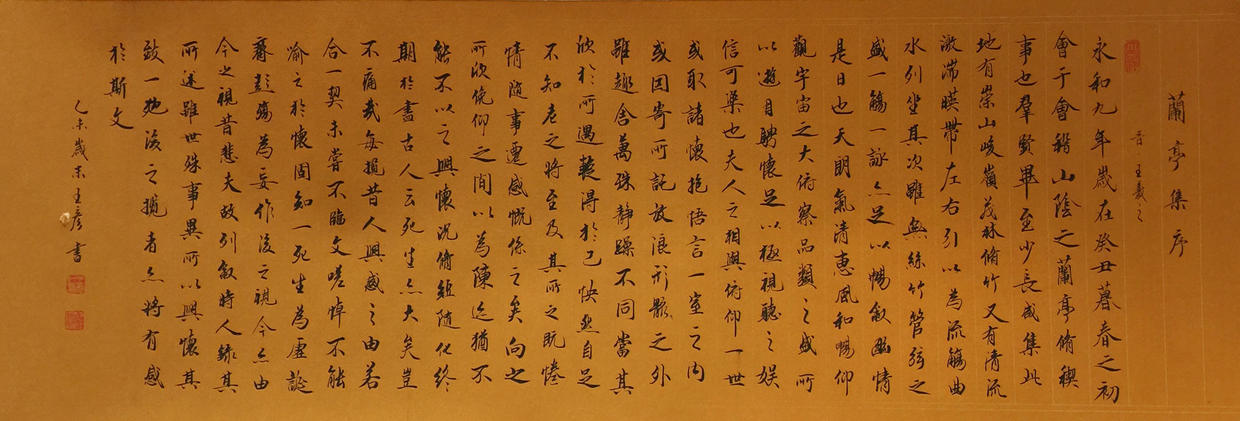 蘭亭集序
晉王羲之
永和九年歲在癸丑暮春之初
會于會稽山陰之蘭亭脩稧
事也羣賢畢至少長咸集此
地有崇山峻嶺茂林脩竹又有清流
激湍暎帶左右引以為流觴曲
水列坐其次雖無絲竹管弦之
盛一觴一詠亦足以暢敘幽情
是日也天朗氣清惠風和暢仰
觀宇宙之大俯察品類之盛所
以遊目騁懷足以極視聽之娛
信可樂也夫人之相與俯仰一世
或取諸懷抱悟言一室之內
或因寄所託放浪形骸之外
雖趣舍萬殊靜躁不同當其
欣於所遇蹔得於己怏然自足
不知老之將至及其所之既惓
情隨事遷感慨係之矣向之
所欣俛仰之間以為陳迹猶不
能不以之興懷況脩短隨化終
期於盡古人云死生亦大矣豈
不痛哉每攬昔人興感之由若
合一契未嘗不臨文嗟悼不能
喻之於懷固知一死生為虛誕
齊彭殤為妄作後之視今亦由
今之視昔悲夫故列敘時人錄其
所述雖世殊事異所以興懷其
致一也後之攬者亦將有感
於斯文
乙未歲末王彦書